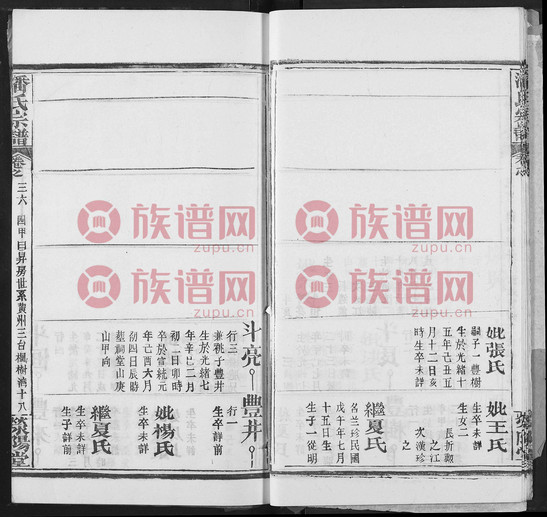 妣張氏
嗣子一豊樹
生於光緒十
五年己丑五
月十二日亥
時生卒未詳
妣王氏
生卒未詳
生女二
長折敷
之江
次漢珍
之
繼夏氏
名蘭珍民國
戊午年七月
十五日生
生子一從明
斗亮
豊井
行三
兼祧子豊井
生於光緒七
年辛巳二月
初二日卯時
卒於宣統元
年己酉六月
初四日辰時
墓祠堂山庚
山甲向
行一
生卒詳前
妣楊氏
生卒未詳
繼夏氏
生卒未詳
生子詳前
潘氏宗譜
卷之
三六
四甲曰昇房世系黄州三台楓樹灣十八
滎陽堂
族谱网
zupu.cn
族谱网
zupu.cn
族谱网
zupu.cn
族谱网
zupu.cn